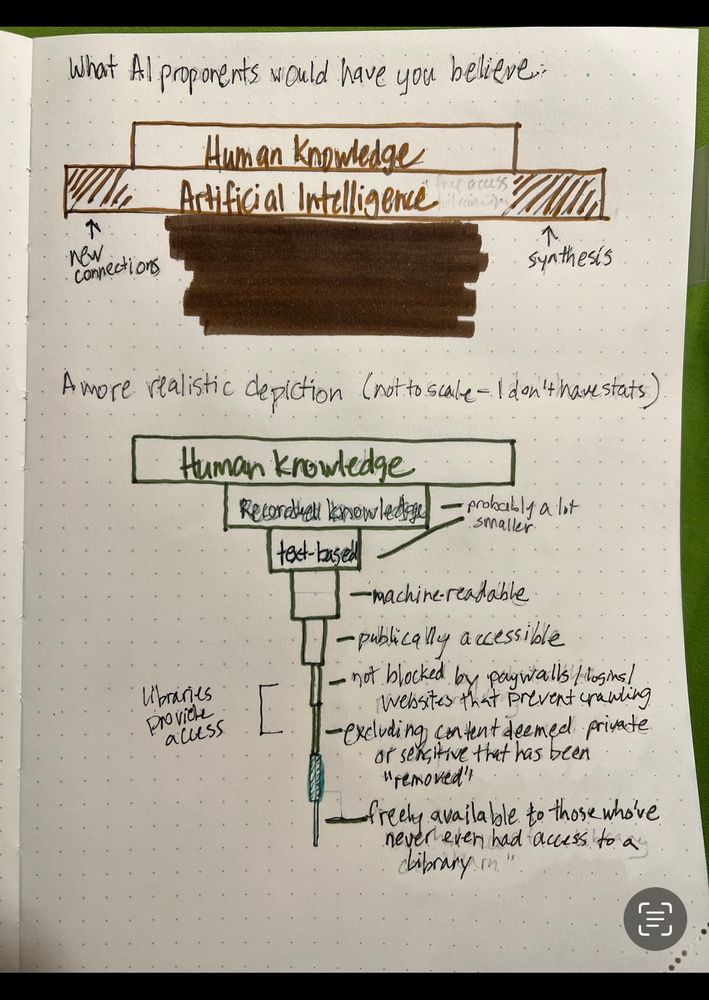 What AI proponents would have you believe:
Human Knowledge
Artificial Intelligence
free access
new
connections
synthesis
A more realistic depiction (not to scale - I don't have stats)
Human Knowledge
Recorded knowledge
probably a lot
smaller
text-based
machine-readable
publically accessible
not blocked by paywalls/logins/
websites that prevent crawling
Libraries
provide
access
excluding content deemed private
or sensitive that has been
"removed"
freely available to those who've
never even had access to a
library